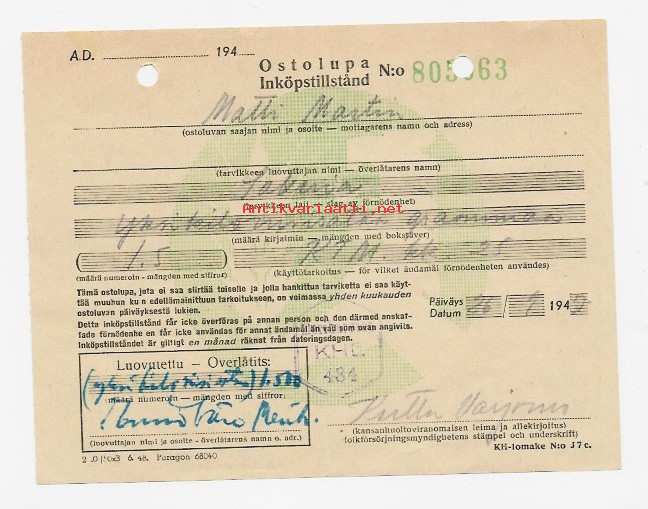 A.D. 194
Ostolupa
Inköpstillstånd N:o 805063
Matti Martin
(ostoluvan saajan nimi ja osoite — mottagarens namn och adress)
(tarvikkeen luovuttajan nimi — överlåtarens namn)
(tarvikkeen laji — slag av förnödenhet)
Antikvariaatti.net
(määrä kirjaimin — mängden med bokstäver)
(1.5)
(määrä numeroin - mängden med siffror)
(käyttötarkoitus — för vilket ändamål förnödenheten användes)
Tämä ostolupa, jota ei saa siirtää toiselle ja jolla hankittua tarviketta ei saa käyt-
tää muuhun kuin edellämainittuun tarkoitukseen, on voimassa yhden kuukauden
ostoluvan päiväyksestä lukien.
Detta inköpstillstånd får icke överföras på annan person och den därmed anskaf-
fade förnödenheten får icke användas för annat ändamål än vad som ovan angivits.
Inköpstillståndet är giltigt en månad räknat från dateringsdagen.
Päiväys
Datum 194
Luovutettu — Överlåtits:
1.500
(määrä numeroin — mängden med siffror)
(luovuttajan nimi ja osoite - överlåtarens namn o. adr.)
KHL
484
(kansanhuoltoviranomaisen leima ja allekirjoitus)
(folkförsörjningsmyndighetens stämpel och underskrift)
KH-lomake N:o J7c.
6. 48. Paragon 68040